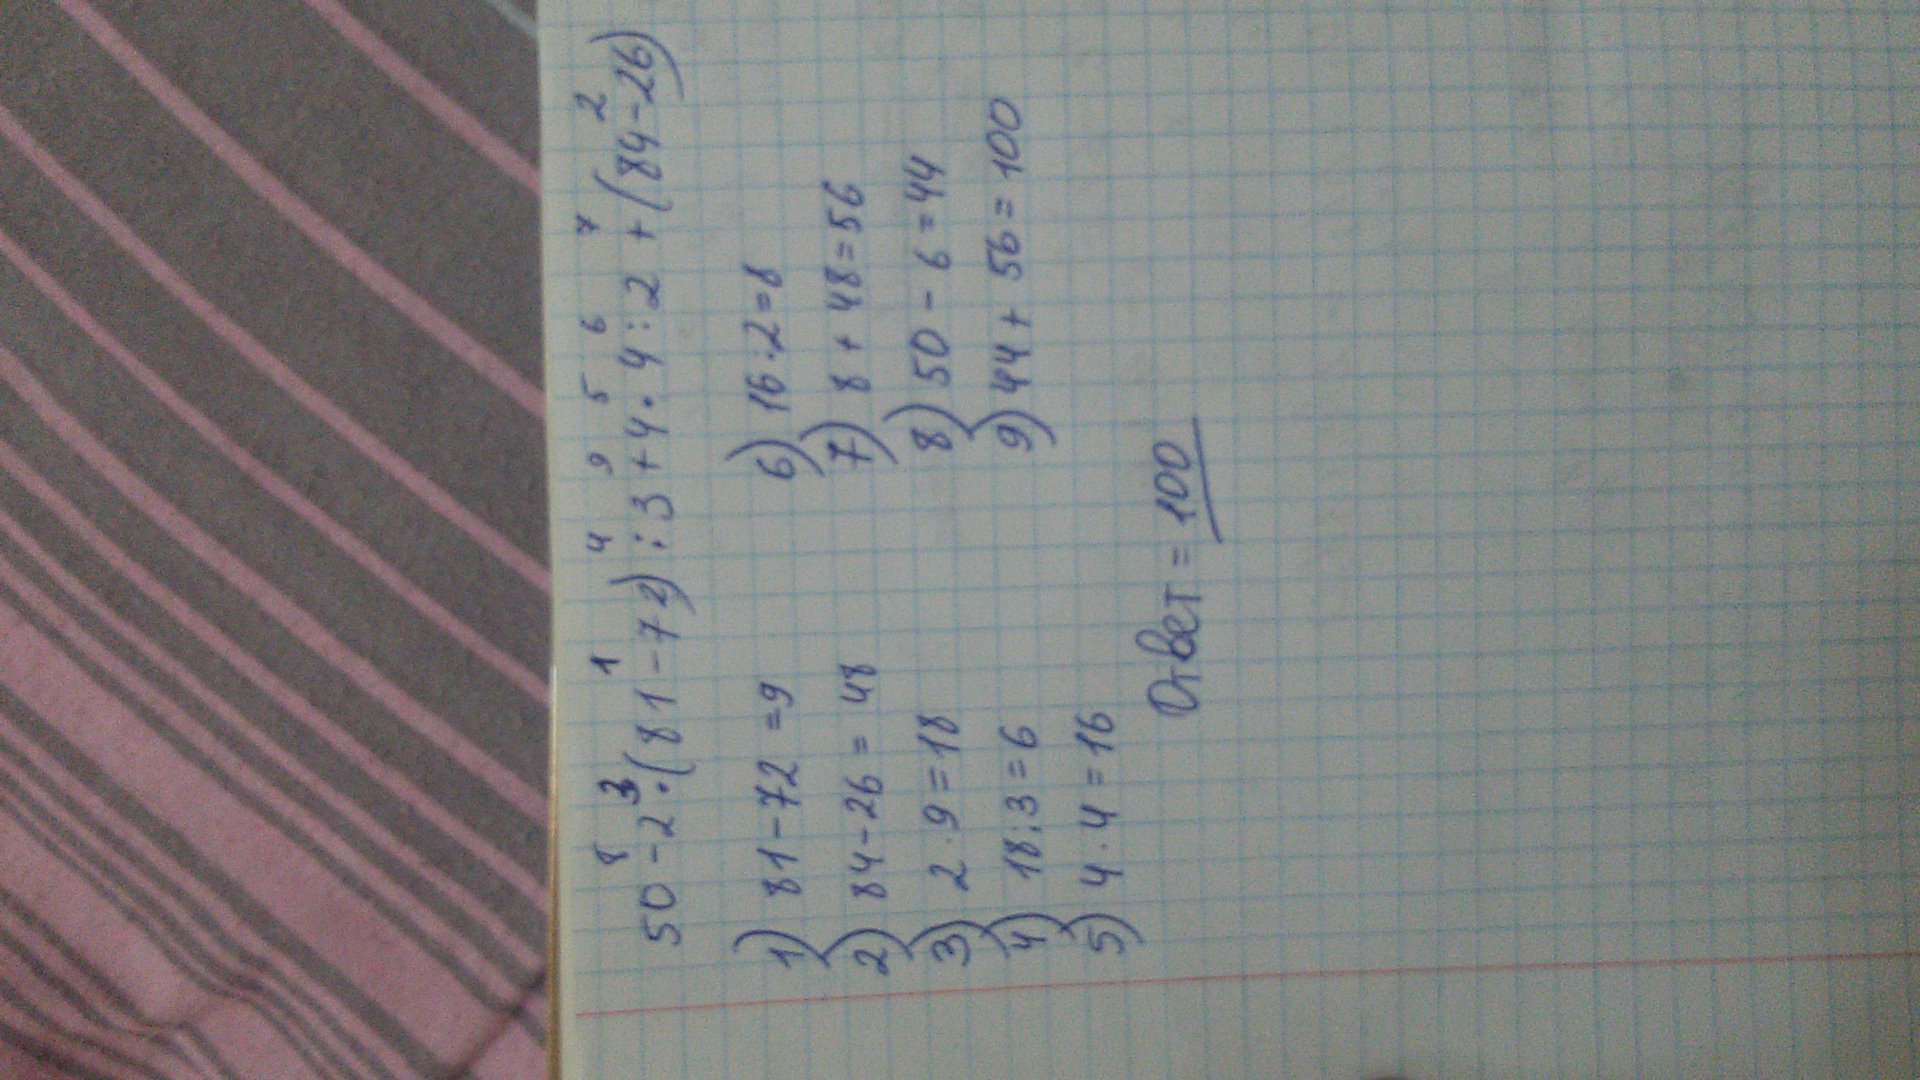 8 3 1 4 9 5 6 7 2
50-2·(81-72):3+4·4:2+(84-26)
1) 81-72=9
2) 84-26=48
3) 2·9=18
4) 18:3=6
5) 4·4=16
6) 16·2=8
7) 8+48=56
8) 50-6=44
9) 44+56=100
Ответ=100